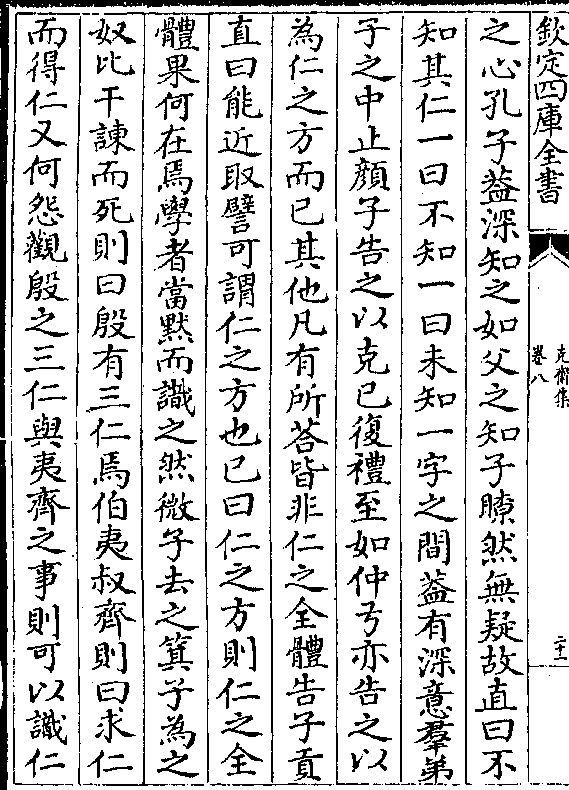 欽定四庫全書
卷八
二十一
之心孔子葢深知之如父之知子瞭然無疑故直曰不
知其仁一曰不知一曰未知一字之間葢有深意羣弟
子之中止顔子告之以克已復禮至如仲弓亦告之以
為仁之方而已其他凡有所荅皆非仁之全體告子貢
直曰能近取譬可謂仁之方也已曰仁之方則仁之全
體果何在焉學者當默而識之然微子去之箕子為之
奴比干諫而死則曰殷有三仁焉伯夷叔齊則曰求仁
而得仁又何怨觀殷之三仁與夷齊之事則可以識仁